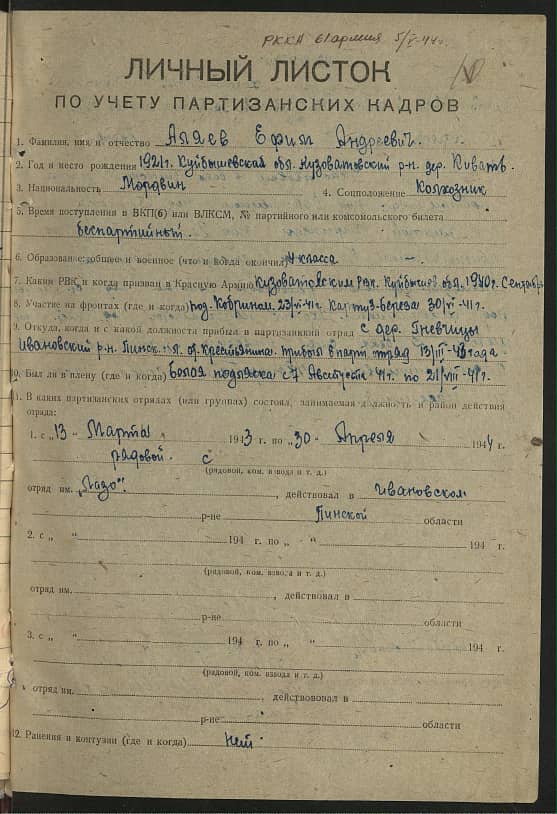 РККА 61 армия 5/V-44г.
ЛИЧНЫЙ ЛИСТОК
ПО УЧЕТУ ПАРТИЗАНСКИХ КАДРОВ
1. Фамилия, имя и отчество Аляев Ефим Андреевич.
2. Год и место рождения 1921г. Куйбышевская обл. Кузоватовский р-н. дер. Кивать.
3. Национальность Мордвин 4. Соцположение Колхозник
5. Время поступления в ВКП(б) или ВЛКСМ, № партийного или комсомольского билета
беспартийный.
6. Образование: общее и военное (что и когда окончил) 4 класса —.
7. Каким РВК и когда призван в Красную Армию Кузоватовским Рвк. Куйбышев обл. 1940г. Сентябр
8. Участие на фронтах (где и когда) под. Кобрином. 23/VI-41г. Картуз-береза 30/VI-41г.
9. Откуда, когда и с какой должности прибыл в партизанский отряд с дер. Гневчицы
Ивановский р-н. Пинск. обл. от крестьянина. прибыл в парт отряд 13/III-43 года.
10. Был ли в плену (где и когда) Белая подляска с 7 Августа 41г. по 21/VIII-41г.
11. В каких партизанских отрядах (или группах) состоял, занимаемая должность и район действия
отряда:
1. с „13 - Марта 1943 г. по „30 - Апреля 1944 г.
рядовой. с
(рядовой, ком. взвода и т. д.)
отряд им. „Лазо". , действовал в Ивановском
р-не Пинской области
2. с „ “ 194 г. по „ “ 194 г.
(рядовой, ком. взвода и т. д.)
отряд им. , действовал в
р-не области
3. с „ “ 194 г. по „ “ 194 г.
(рядовой, ком. взвода и т. д.)
отряд им. , действовал в
р-не области
12. Ранения и контузии (где и когда) нет